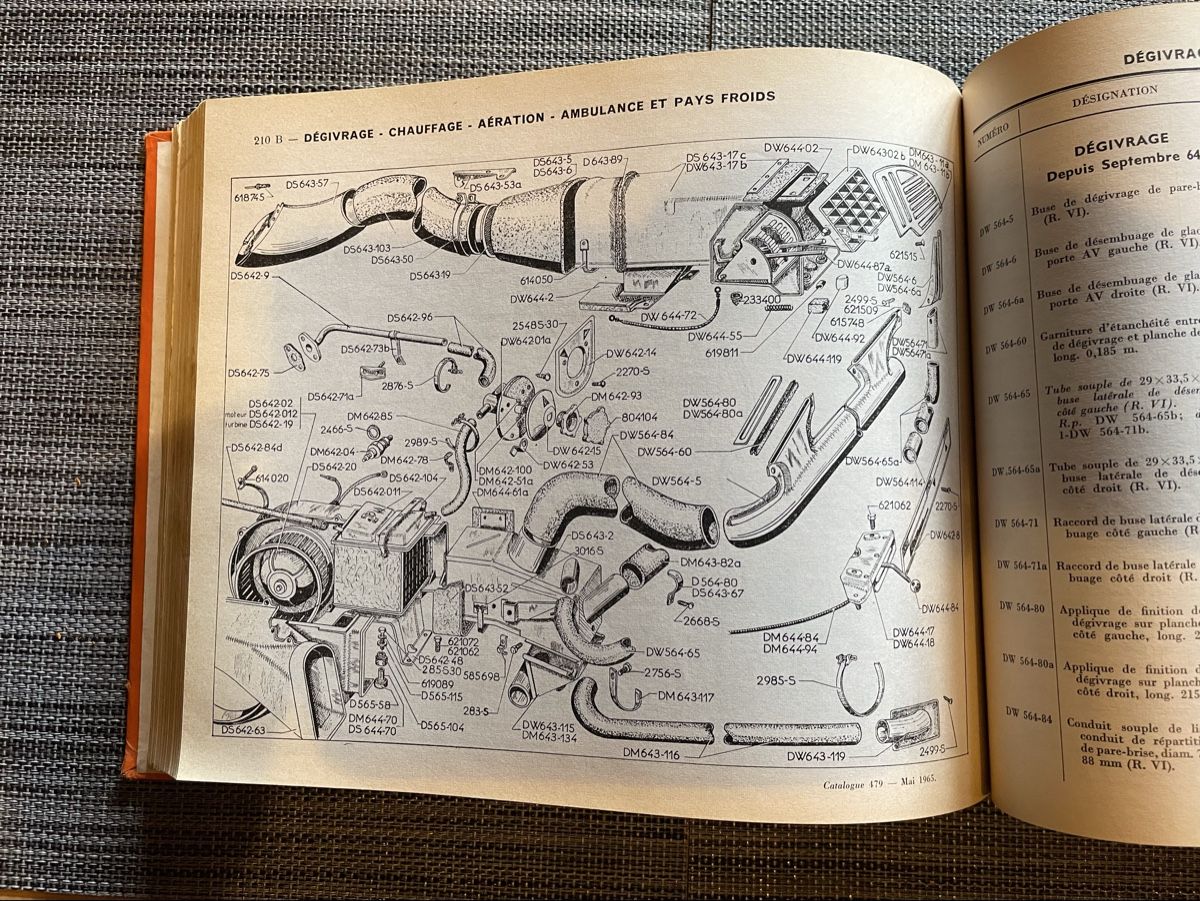 210 B — DÉGIVRAGE - CHAUFFAGE - AÉRATION - AMBULANCE ET PAYS FROIDS
618745
DS643-57
DS643-5
DS643-6
DS643-53a
D643-89
DS643-17c
DW643-17b
DW644-02
DW64302b
DM643-11a
DM643-11b
DS643-103
DS643-50
DS64319
614050
DW644-2
DW644-72
233400
DW644-87a
621515
DW564-6
DW564-6a
2499-S
621509
615748
DW644-55
619811
DW644-92
DW644-119
DW56471
DW56471a
DS642-9
DS642-96
DS642-73b
DS642-75
2876-S
DS642-71a
2548S-30
DW64201a
DW642-14
2270-S
DM642-93
804104
DW564-84
DW642-15
DW642-53
DW564-80
DW564-80a
DW564-60
DW564-5
DW564-65a
DW564114
2270-S
DW642-8
DS642-02
moteur DS642-012
turbine DS642-19
DM642-85
2466-S
2989-S
DM642-04
DM642-78
DS642-84d
614020
DS642-20
DS642-104
DS642011
DM642-100
DM642-51a
DM644-61a
DS643-2
3016S
DS643-52
DM643-82a
D564-80
DS643-67
2668-S
621062
DM644-84
DM644-94
DW644-84
DW644-17
DW644-18
DW564-65
2756-S
DM643-117
2985-S
621072
621062
DS642-48
28S630
619089
D565-115
585698
283-S
D565-58
DM644-70
DS644-70
D565-104
DW643-115
DM643-134
DS642-63
DM643-116
DW643-119
2499-S
Catalogue 479 — Mai 1965.
DÉGIVRA
NUMÉRO
DÉSIGNATION
DÉGIVRAGE
Depuis Septembre 64
DW 564-5
Buse de dégivrage de pare-b
(R. VI).
DW 564-6
Buse de désembuage de glac
porte AV gauche (R. VI).
DW 564-6a
Buse de désembuage de gla
porte AV droite (R. VI).
DW 564-60
Garniture d'étanchéité entre
de dégivrage et planche de
long. 0,185 m.
DW 564-65
Tube souple de 29×33,5×
buse latérale de désem
côté gauche (R. VI).
R.p. DW 564-65b;
1-DW 564-71b.
DW.564-65a
Tube souple de 29×33,5×
buse latérale de dés
côté droit (R. VI).
DW 564-71
Raccord de buse latérale
buage côté gauche (R
DW 564-71a
Raccord de buse latérale
buage côté droit (R.
DW 564-80
Applique de finition d
dégivrage sur planch
côté gauche, long. 2
DW 564-80a
Applique de finition d
dégivrage sur planch
côté droit, long. 215
DW 564-84
Conduit souple de li
conduit de répartiti
de pare-brise, diam. 7
88 mm (R. VI).